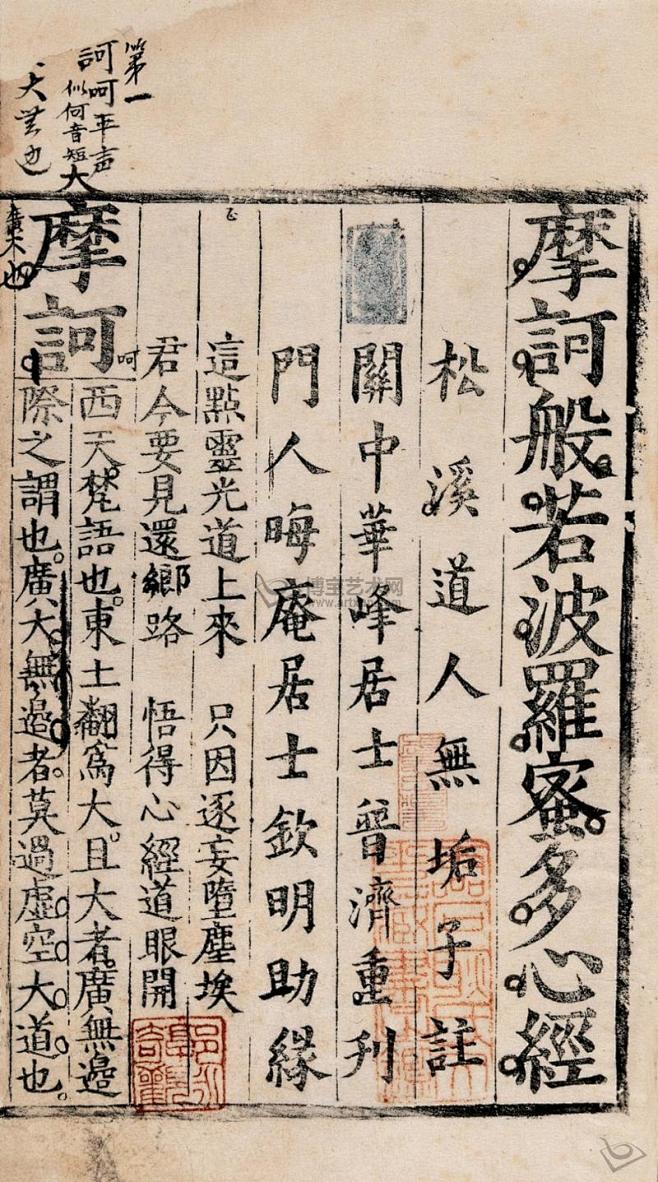 摩訶般若波羅蜜多心經
松溪道人無垢子註
關中華峰居士普濟重刋
門人晦庵居士欽明助緣
這點靈光道上來 只因逐妄墮塵埃
君今要見還鄉路 悟得心經道眼開
摩訶
西天梵語也東土翻爲大且大者廣無邉
際之謂也廣大無邉者莫過虛空大道也
第一
訶呵平声
似何音短
大
呵
廣大也
博宝艺术网